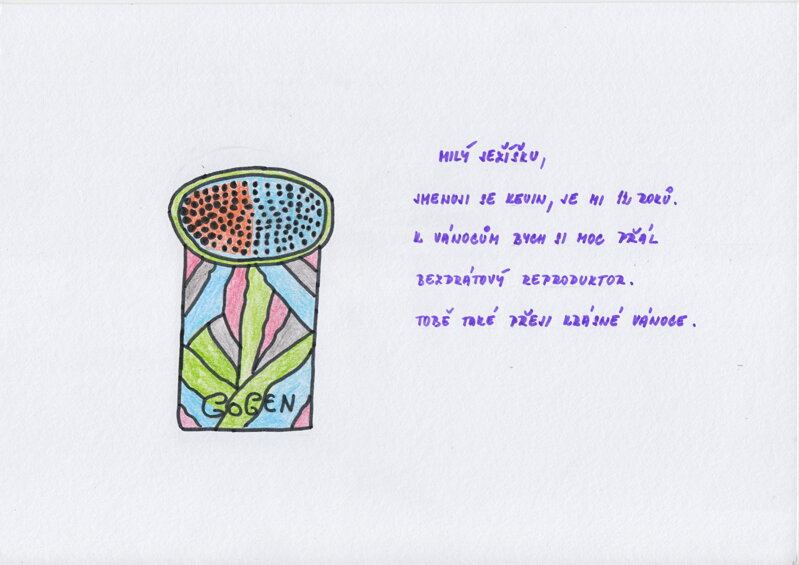 GOGEN
MILÝ JEŽÍŠKU,
JMENUJI SE KEVIN, JE MI 12 ROKŮ.
K VÁNOCŮM BYCH SI MOC PŘÁL
BEZDRÁTOVÝ REPRODUKTOR.
TOBĚ TAKÉ PŘEJI KRÁSNÉ VÁNOCE.